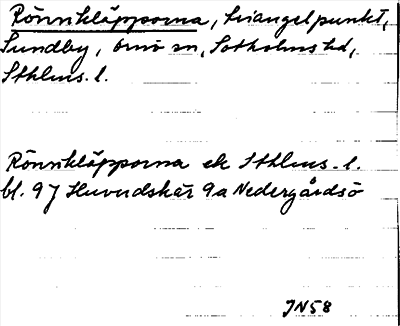 Rönnkläpparna, triangelpunkt,
Sundby, Ornö sn, Sotholms hd,
Sthlms. l.
Rönnkläpparna ek Sthlms. l.
bl. 97 Huvudskär 9a Nedergårdsö
JN58